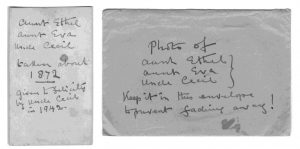 Aunt Ethel
Aunt Eva
Uncle Cecil
taken about
1872
given to Felicity
by Uncle Cecil
in 1942.
Photo of
Aunt Ethel
Aunt Eva
Uncle Cecil
Keep it in this envelope
to prevent fading away!